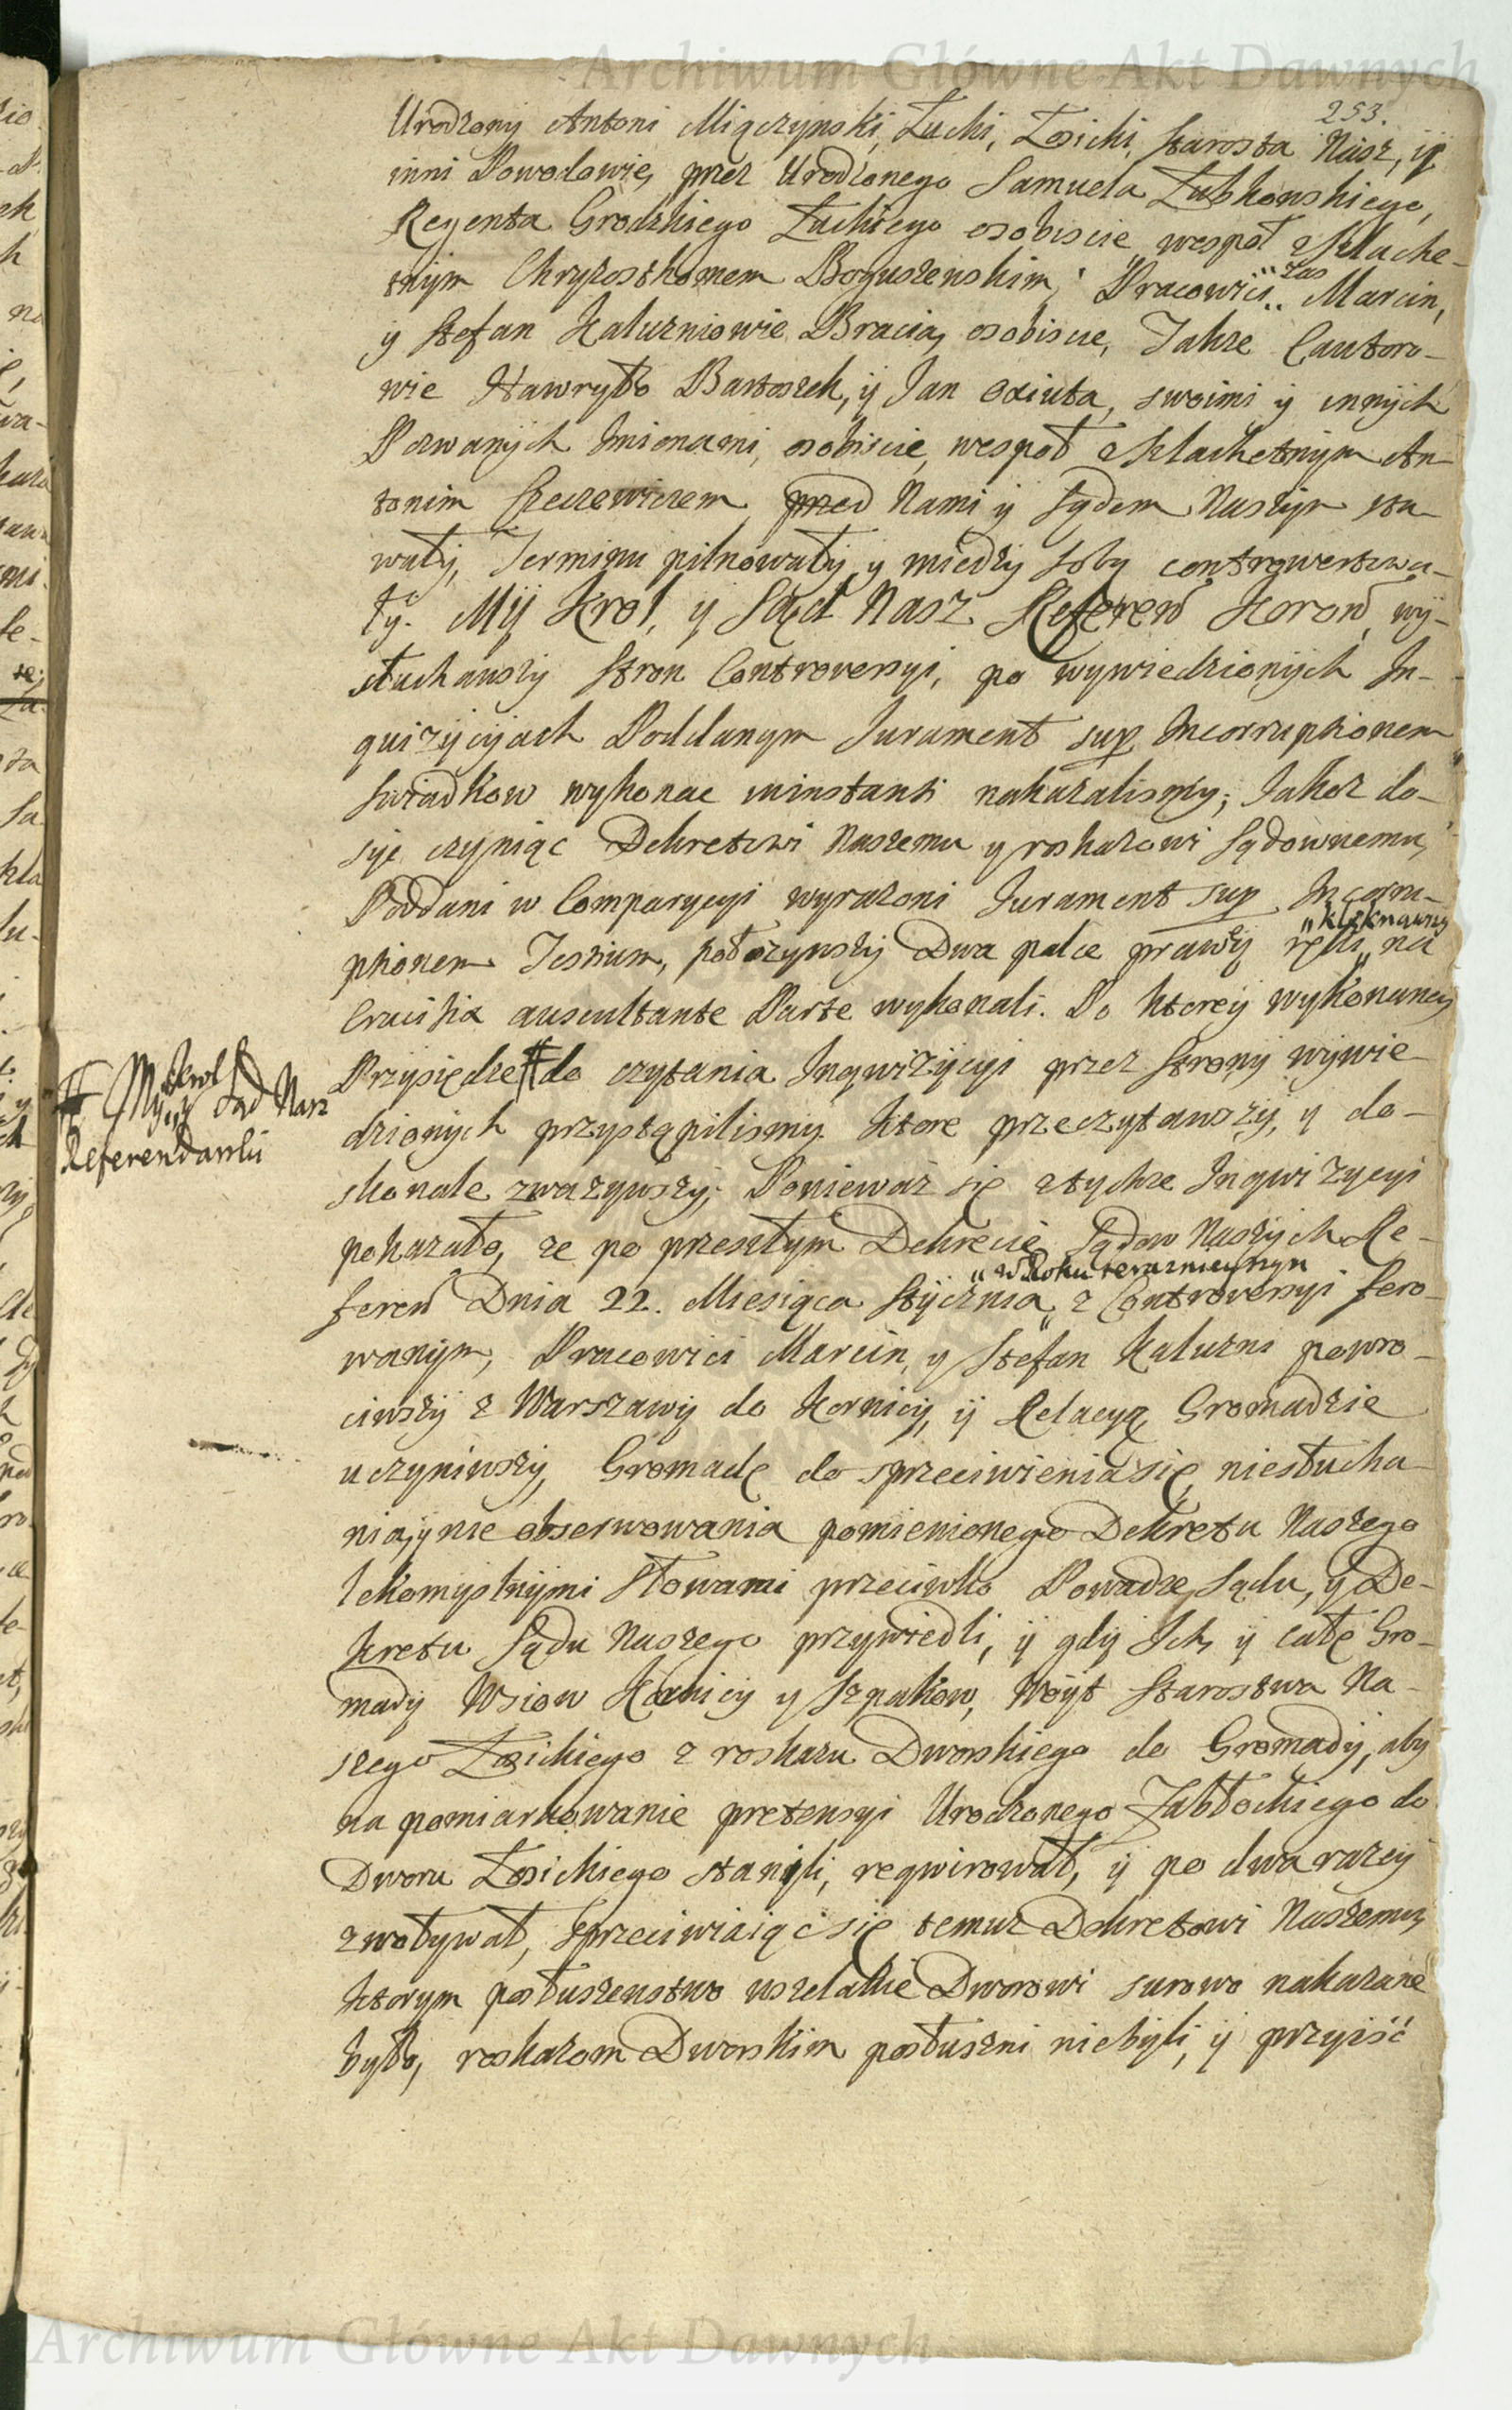 Archiwum Główne Akt Dawnych
253.
Urodzony Antoni Miączynski, Łucki, Łosicki, Starosta Nasz, ÿ
inni Powodowie, przez Urodzonego Samuela Łubkowskiego,
Regenta Grodzkiego Łuckiego osobiscie, wespoł z Szlache-
tnÿm Chryzosthomem Boguszewskim; Pracowici "zas Marcin,
y Stefan Kaluzniowie Bracia, osobiscie, Takze Cautoro-
wie Hawryło Bartoszek, ÿ Jan Oxiuta, swoimi ÿ innÿch
Pozwanÿch Imionami, osobiscie, wespoł z Szlachetnÿm An-
tonim Szczewiczem przed Nami ÿ Sądem Naszÿm sta-
wałÿ, Terminu pilnowałÿ, y miedzÿ sobą controwertowa-
łÿ. Mÿ Krol, y Sąd Nasz Referen Koron, wÿ-
słuchawszÿ Stron Controversyi, po wywiedzionÿch In-
quizÿcÿach Poddanym Jurament sup Incorruptionem
Swiadkow wykonac ininstanti nakazalismÿ; Jakoz do-
syc czyniąc Dekretowi Naszemu y roskazowi Sądownemu,
Poddani w Comparycyi wyrazoni Jurament sup Incorru-
"klęknąwszÿ
ptionem Testium, połozywszÿ Dwa palce prawÿ ręki, na
Crucifix auscultante Parte wykonali. Po ktorey wykonaney
Przysiędze # do czytania Inqwizÿcyi przez Stronÿ wÿwie-
# Mÿ Krol ÿ Sąd Nasz
Referendarski
dzionÿch przystąpilismÿ. Ktore przeczytawszÿ, y do-
skonale zwazywszÿ; Poniewaz się z tychze Inqwizycyi
pokazało, ze po przeszłym Dekrecie, Sądow Naszÿch Re-
"w Roku teraznieyszym
feren Dnia 22. Miesiąca Stÿcznia, z Controversyi fero-
wanÿm, Pracowici Marcin, y Stefan Kaluzni powro-
ciwszÿ z Warszawÿ do Kornicÿ, ÿ Relacyą Gromadzie
uczyniwszÿ, Gromadę do sprzeciwienia się, niesłucha-
nia, ÿ nie obserwowania pomienionego Dekretu Naszego
lekomyslnÿmi słowami przeciwko Powadze Sądu, ÿ De-
kretu Sądu Naszego przywiedli, ÿ gdÿ Ich, ÿ całę Gro-
madÿ Wsiow Kornicÿ y Szpakow, Woyt Starostwa Na-
szego Łosickiego z roskazu Dworskiego do Gromadÿ, aby
na pomiarkowanie pretensyi Urodzonego Jabłockiego do
Dworu Łosickiego stanęli, reqwirował, ÿ po dwa razey
zwoływał, sprzeciwiaiąc się temuz Dekretowi Naszemu,
ktorym posłuszenstwo wszelakie Dworowi surowo nakazane
było, roskazom Dworskim posłuszni niebÿli, ÿ przyiść
Archiwum Główne Akt Dawnych